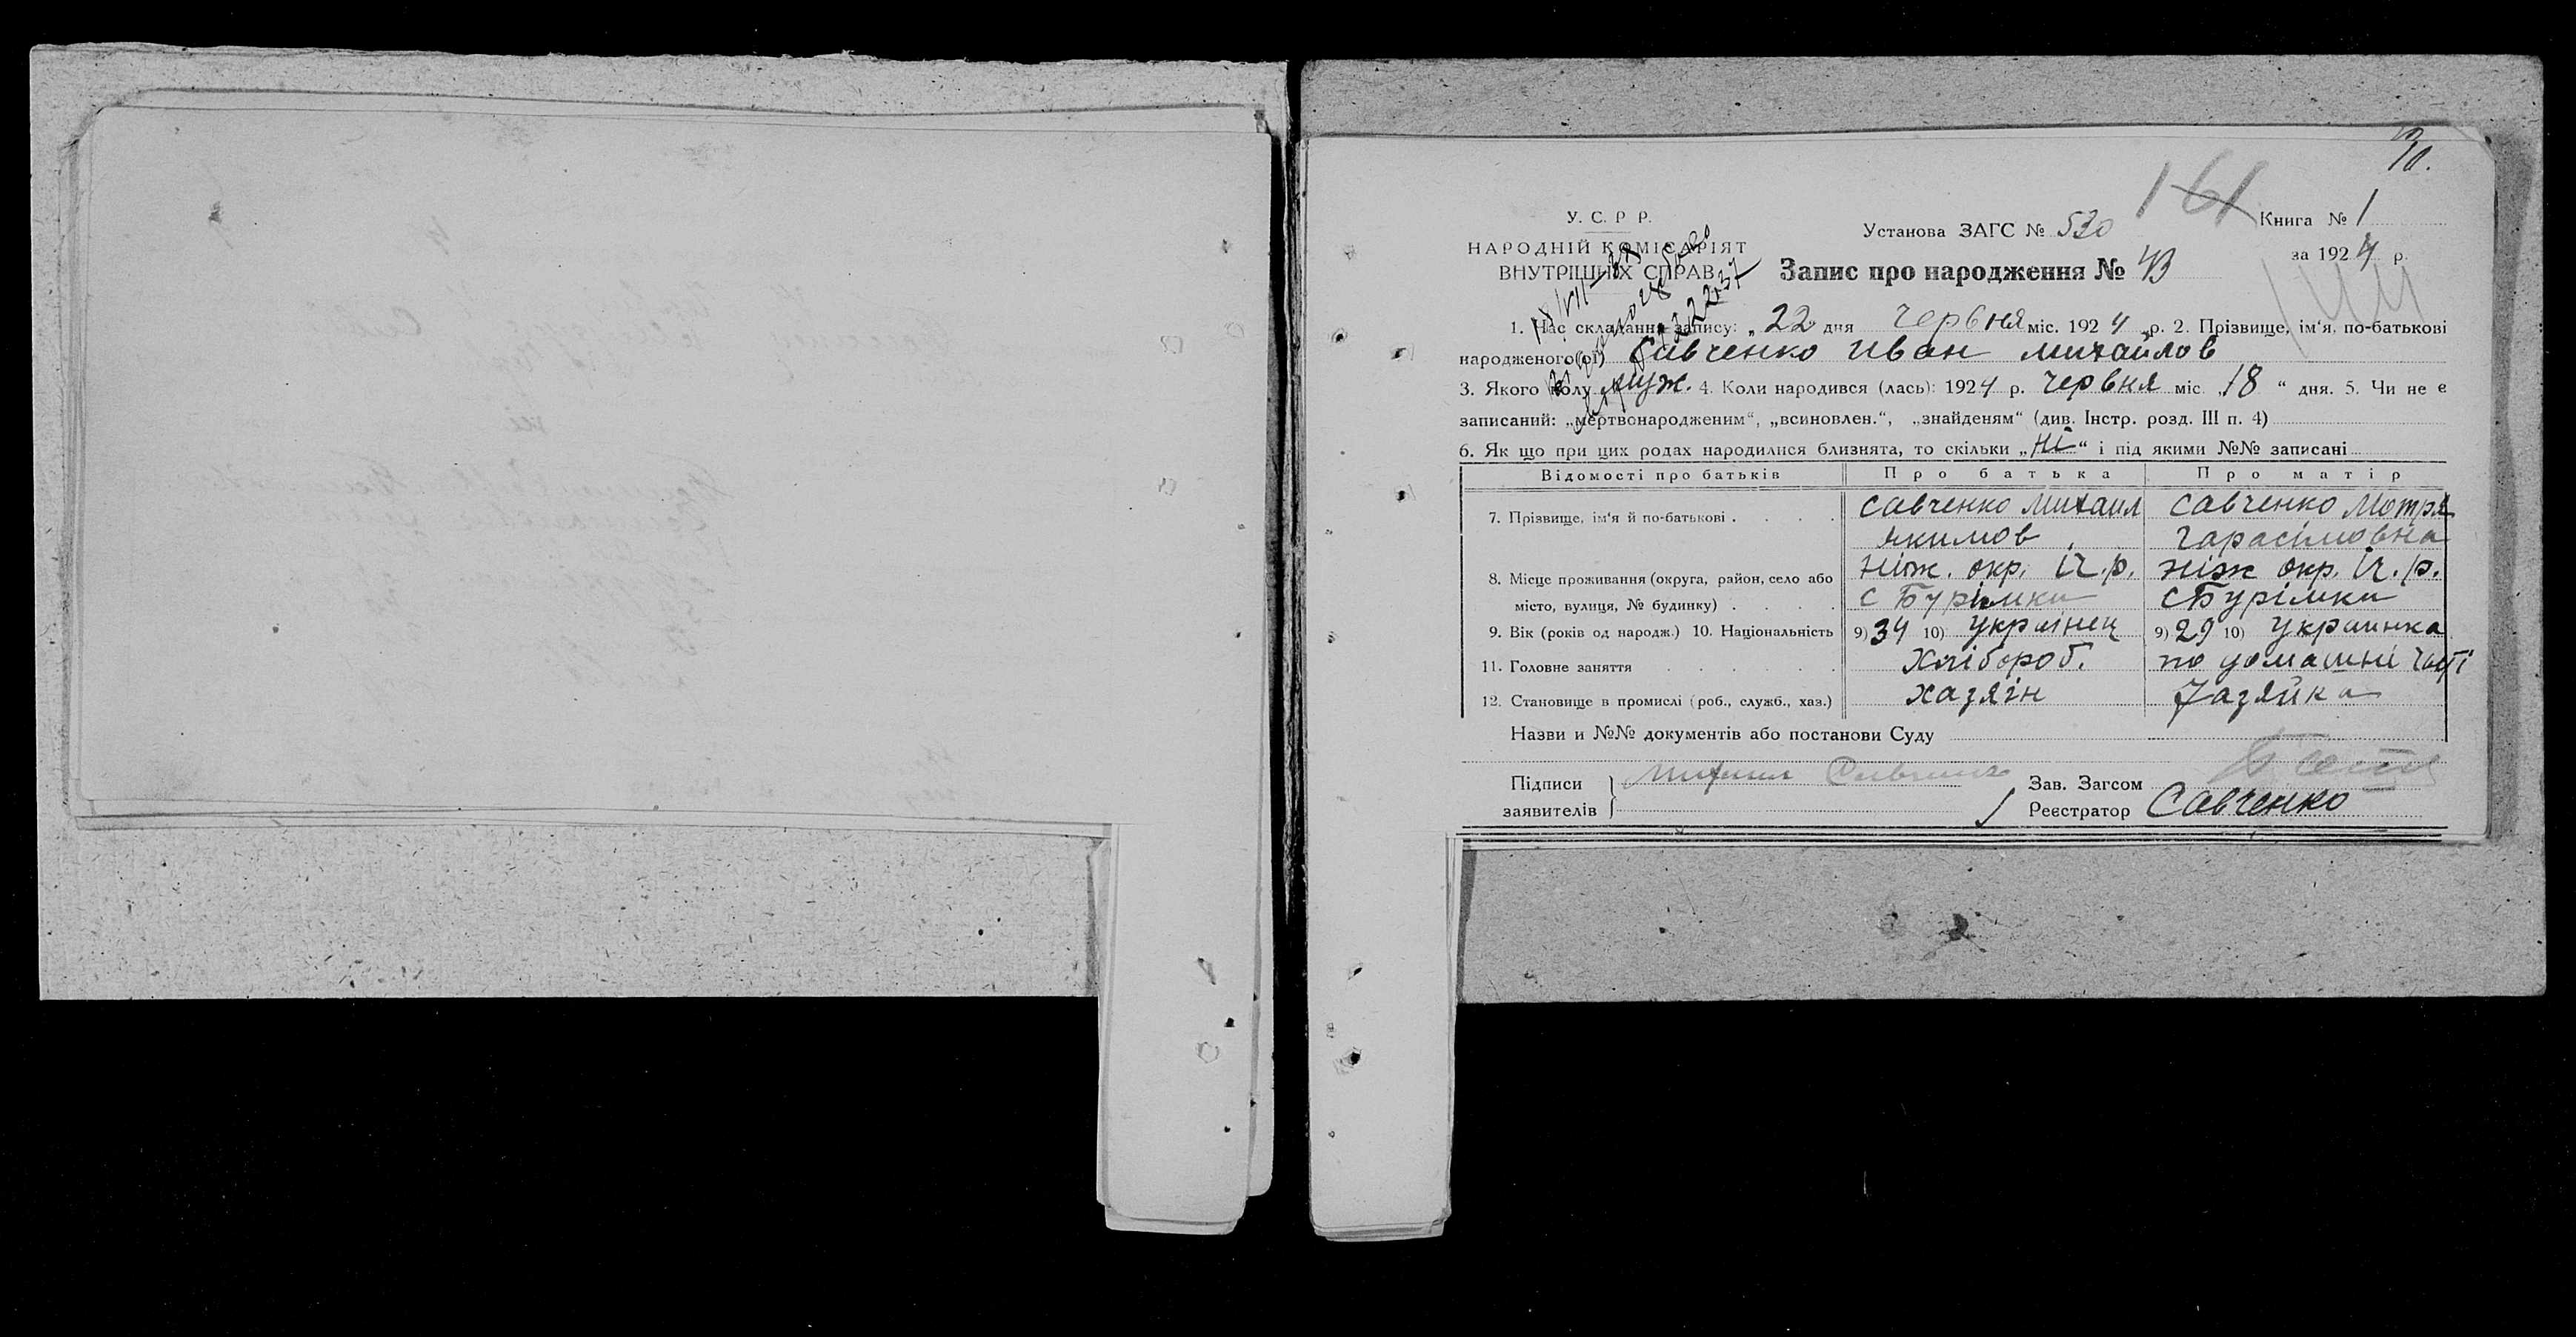 У. С. Р Р.
НАРОДНІЙ КОМІСАРІЯТ
ВНУТРІШНІХ СПРАВ
Установа ЗАГС № 530
161
Книга № 1
за 1924 р.
Запис про народження № 43
1. Час складання запису: „22 дня червня міс. 1924 р. 2. Прізвище, ім'я, по-батькові
народженого(ої) Савченко Иван Михайлов
3. Якого полу муж. 4. Коли народився (лась): 1924 р. червня міс. „18“ дня. 5. Чи не е
записаний: „мертвонародженим“, „всиновлен.“, „знайденям“ (див. Інстр. розд. III п. 4)
6. Як що при цих родах народилися близнята, то скільки „ні“ і під якими №№ записані
Відомості про батьків Про батька Про матір
7. Прізвище, ім'я й по-батькові . . . . Савченко Михаил Савченко Мотря
якимов Гарасімовна
8. Місце проживання (округа, район, село або ніж. окр. Іч.р. ніж окр. Іч.р.
місто, вулиця, № будинку) . . . . с Бурімки с Бурімки
9. Вік (років од народж.) 10. Національність 9) 34 10) украінец 9) 29 10) украинка
11. Головне заняття . . . . . . Хлібороб. по домашні часті
12. Становище в промислі (роб., служб., хаз.) хазяїн Хазяйка
Назви и №№ документів або постанови Суду
Підписи Михаил Савченко Зав. Загсом
заявителів Реєстратор Савченко